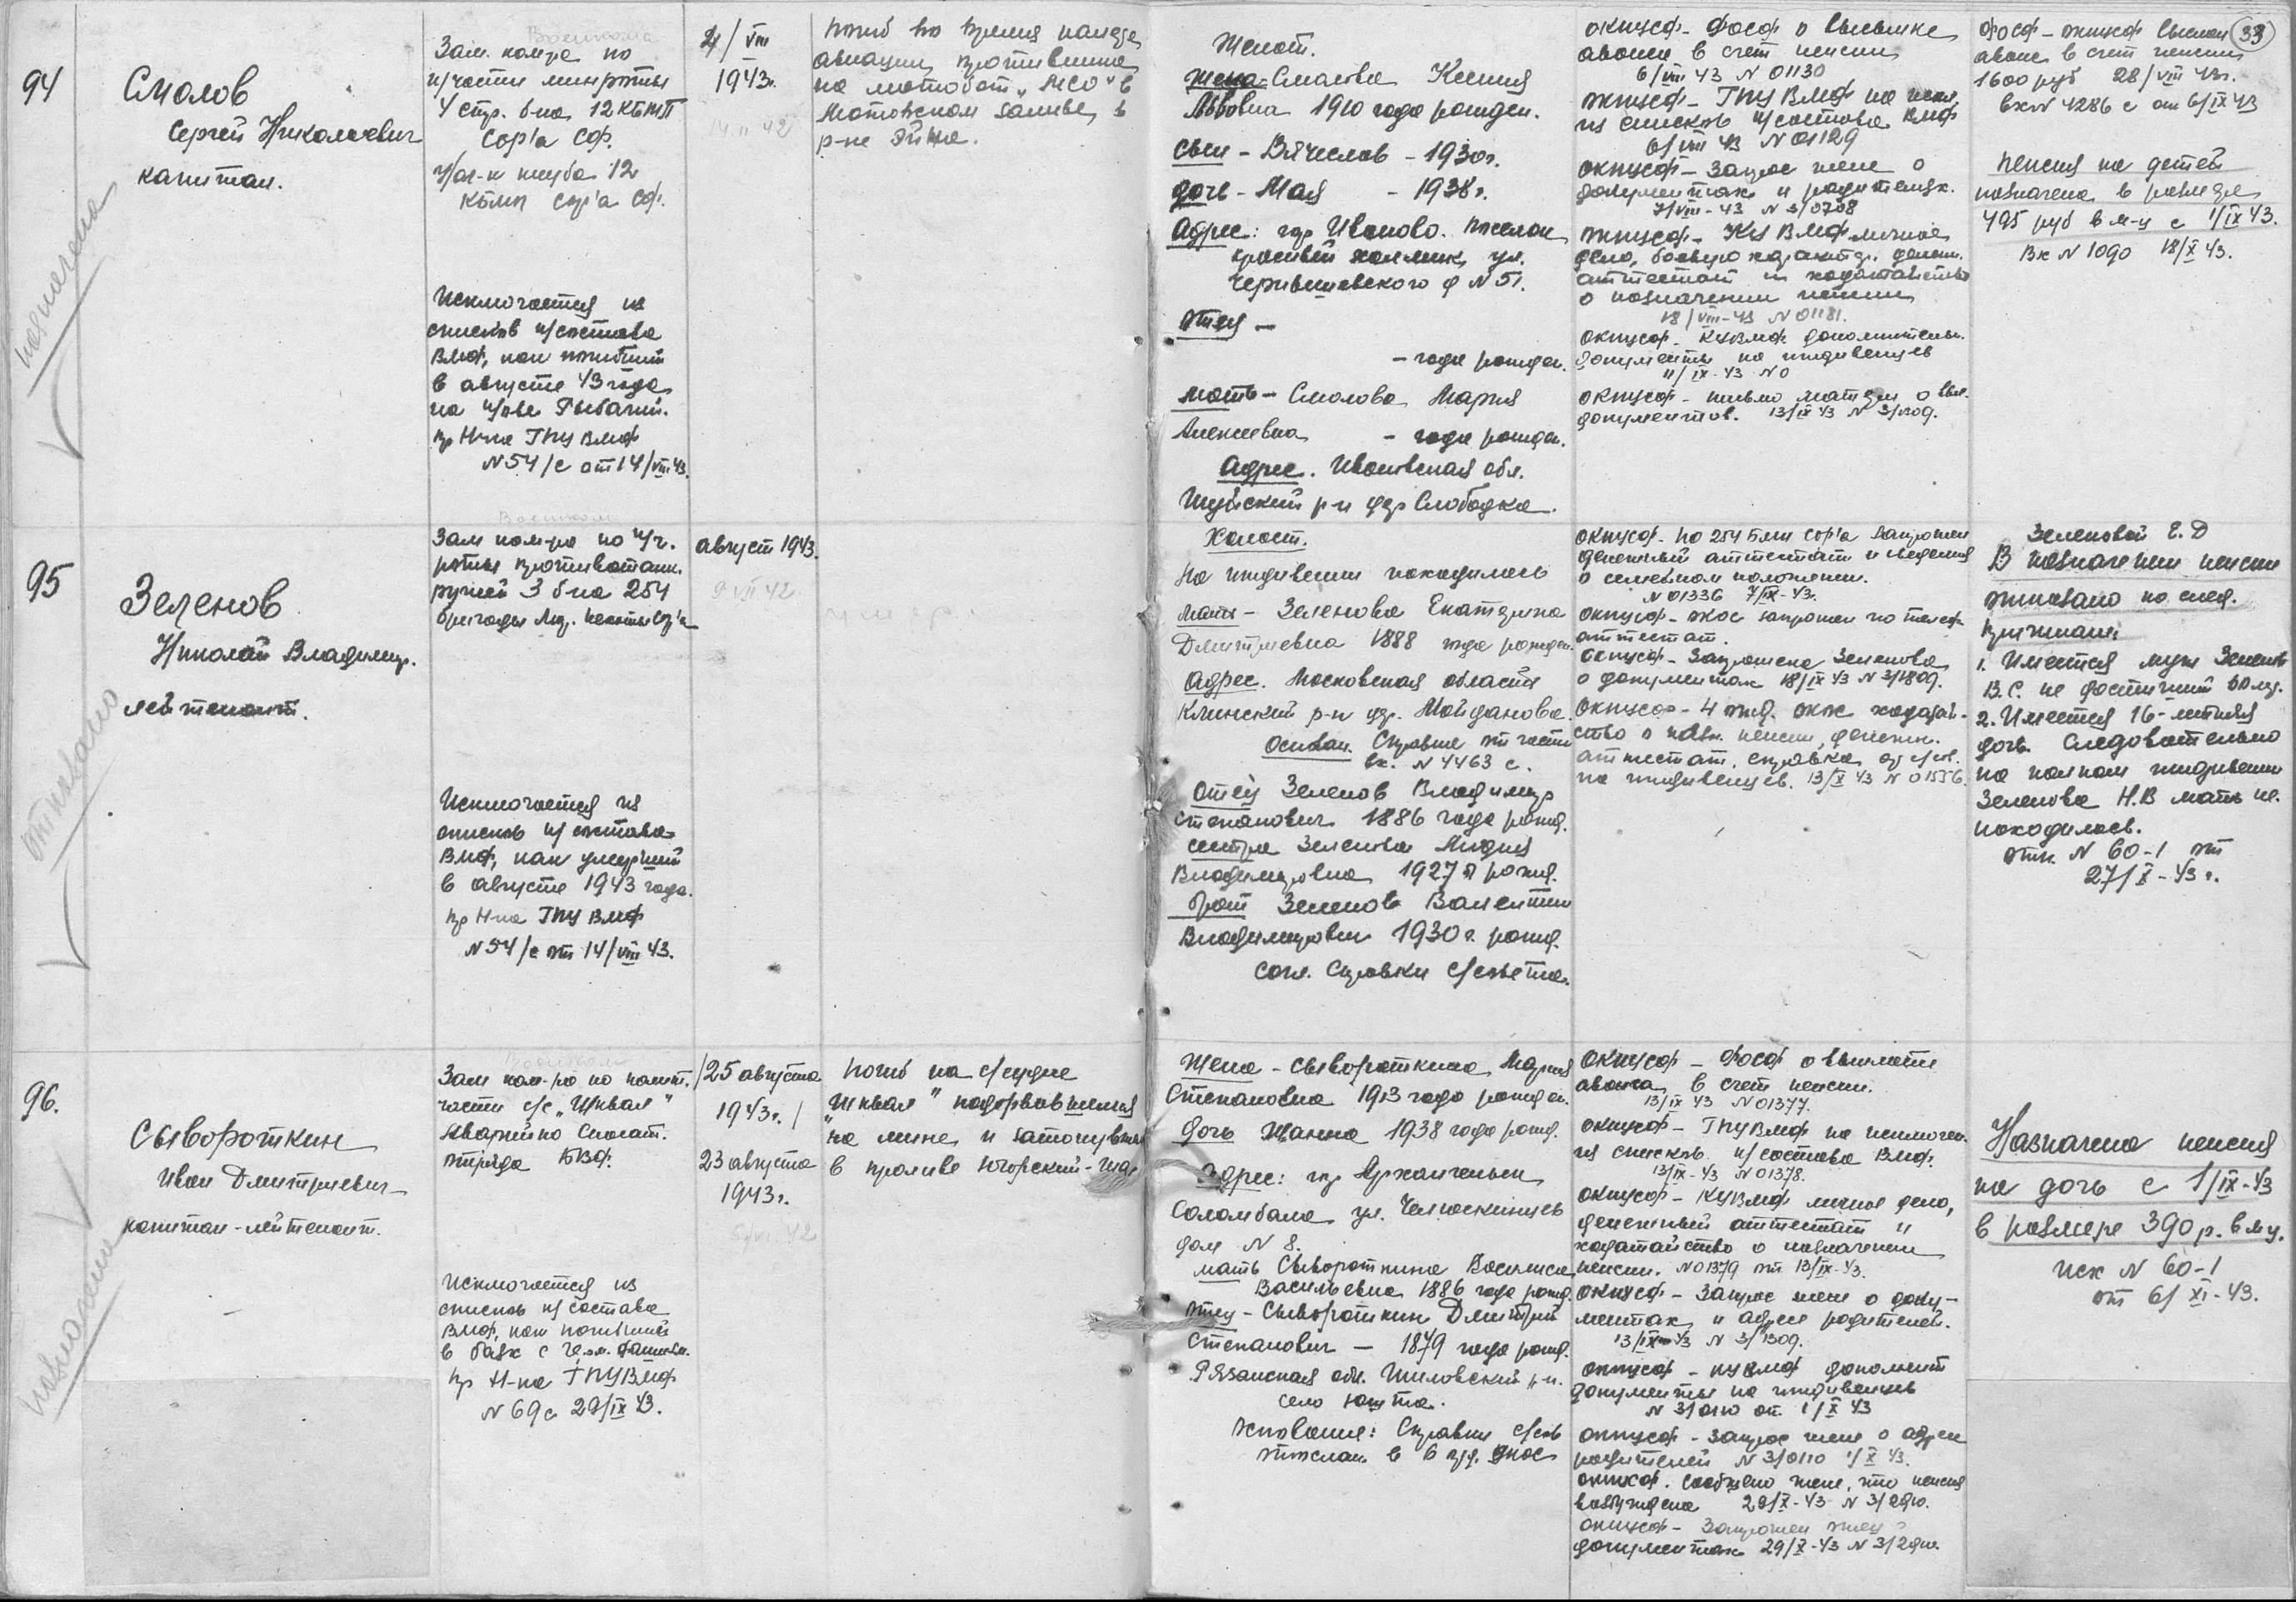 33
94
Смолов
Сергей Николаевич
капитан.
назначена
Военкома
Зам. комра по
п/части минроты
4 стр. б-на 12 КБМП
СОР'а СФ.
Исключается из
списков н/состава
ВМФ, как погибший
в августе 43 года
на п/ове Рыбачий.
пр Н-ка ГПУ ВМФ
N 54/с от 14/VIII 43.
4/VIII
1943г.
14.II 42
погиб во время налета
авиации противника
на мотобот "МСО" в
Мотовском заливе, в
р-не Эйна.
Женат.
жена - Смолова Ксения
Львовна 1910 года рожден.
сын - Вячеслав - 1930г.
дочь - Мая - 1938г.
Адрес: гор Иваново. поселок
красивый холмик, ул.
Чернышевского д N 51.
отец -
- года рожден.
мать - Смолова Мария
Алексеевна - года рожден.
Адрес. Ивановская обл.
Шуйский р-н дер Слободка.
окпусф - Фосф о высылке
аванса в счет пенсии
6/VIII 43 N 01130
окпусф - ГПУ ВМФ на искл.
из списков н/состава ВМФ
6/VIII 43 N 01129
окпусф - Запрос жене о
документах и родителях.
7/VIII-43 N 3/0708
окпусф - КУ ВМФ личное
дело, боевую характер. денежн.
аттестат и ходатайство
о назначении пенсии
18/VIII-43 N 01181.
окпусф - КУВМФ дополнительн.
документы на иждивенцев
11/IX-43 N 0
окпусф - письмо матери о выс.
документов. 13/IX 43 N 3/1309.
Фосф - окпусф выслан
аванс в счет пенсии
1600 руб 28/VIII 43г.
вх N 4286 с от 6/IX 43
пенсия на детей
назначена в размере
495 руб в м-ц с 1/IX 43.
Вх N 1090 18/X 43.
95
Зеленов
Николай Владимир.
лейтенант.
отказано
Военком
Зам ком-ра по п/ч.
роты противотанк.
ружей 3 б-на 254
бригады Мор. пехоты СОР'а
Исключается из
списков н/состава
ВМФ, как умерший
в августе 1943 года.
пр Н-ка ГПУ ВМФ
N 54/с от 14/VIII 43.
август 1943.
Холост.
На иждивении находилась
мать - Зеленова Екатерина
Дмитриевна 1888 года рожден.
Адрес. Московская область
Клинский р-н дер. Майданово.
Основан. Справка от части
вх. N 4463 с.
отец Зеленов Владимир
Степанович 1886 года рожд.
сестра Зеленова Лидия
Владимировна 1927 г рожд.
брат Зеленов Валентин
Владимирович 1930 г. рожд.
согл. Справки с/совета.
окпусф - по 254 бмп СОР'а запрошен
денежный аттестат и сведения
о семейном положении.
N 01336 7/IX-43.
окпусф - жос запрошен по телеф
аттестат.
окпусф - Запрошена Зеленова
о документах 18/IX 43 N 3/1809.
окпусф - 4 отд. окк ходатай-
ство о назн. пенсии, денежн.
аттестат, справка от с/сов.
на иждивенцев. 13/X 43 N 01556.
Зеленовой Е.Д
В назначении пенсии
отказано по след.
причинам
1. Имеется муж Зеленов
В.С. не достигший 60 лет.
2. Имеется 16-летняя
дочь. Следовательно
на полном иждивении
Зеленова Н.В мать не
находилась.
отн N 60-1 от
27/X-43 г.
96.
Сывороткин
Иван Дмитриевич
капитан-лейтенант.
назначена
Военком
Зам ком-ра по полит.
части с/с "Шквал"
Аварийно Спасат.
отряда БВФ.
Исключается из
списков н/состава
ВМФ, как погибший
пр Н-ка ГПУ ВМФ
N 69с 29/IX 43.
/25 августа
1943г./
23 августа
1943г.
Погиб на с/судне
"Шквал" подорвавшемся
на мине и затонувшем
в проливе Югорский-Шар
Жена - Сывороткина Мария
Степановна 1913 года рожден.
дочь Жанна 1938 года рожд.
Адрес: гор Архангельск
Соломбала ул. Челюскинцев
дом N 8.
мать Сывороткина Василиса
Васильевна 1886 года рожд.
отец - Сывороткин Дмитрий
Степанович - 1879 года рожд.
Рязанская обл. Шиловский р-н.
село Юшта.
Основание: Справки с/сов
окпусф - Фосф о выплате
аванса в счет пенсии.
13/IX 43 N 01377.
окпусф - ГПУВМФ на исключен.
из списков н/состава ВМФ.
13/IX-43 N 01378.
окпусф - КУВМФ личное дело,
денежный аттестат и
ходатайство о назначении
пенсии. N 01379 от 13/IX-43.
окпусф - Запрос жене о доку-
ментах и адресе родителей.
13/IX-43 N 3/1309.
окпусф - КУВМФ дополнит
документы на иждивенцев
N 3/0110 от 1/X 43
окпусф - Запрос жене о адресе
родителей N 3/0110 1/X 43.
окпусф. Сообщено жене, что пенсия
возбуждена 29/X-43 N 3/2910.
окпусф - Запрошен отец о
документах 29/X-43 N 3/2910.
Назначена пенсия
на дочь с 1/IX-43
в размере 390 р. в м-ц.
исх N 60-1
от 6/XI-43.